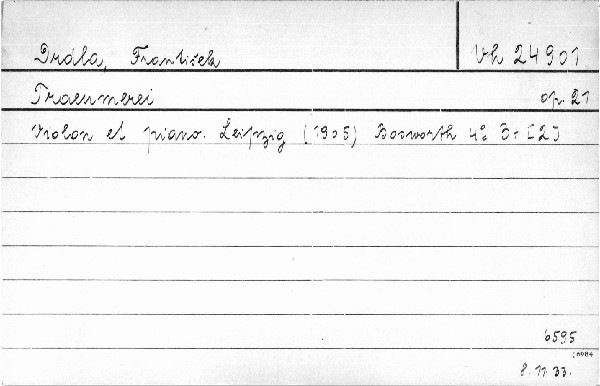 Drdla, František Vh 24901
Traeumerei op. 21
Violon et piano. Leipzig (1905) Bosworth 4° 5+[2]
6595
8. 11. 33.